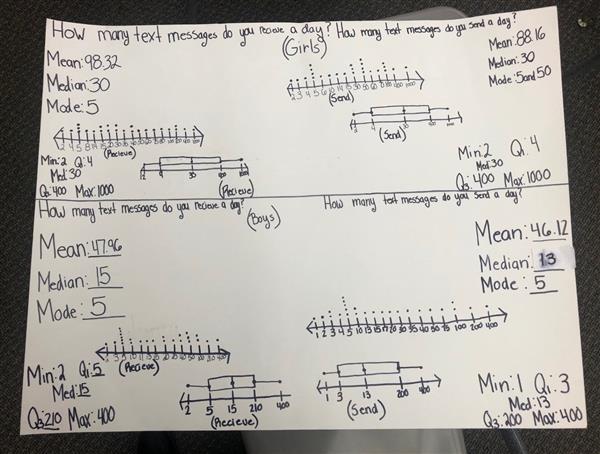 How many text messages do you recieve a day? How many text messages do you send a day?
(Girls)
Mean: 98.32
Median: 30
Mode: 5
Mean: 88.16
Median: 30
Mode: 5 and 50
(Send)
(Recieve)
3 4 30 400 1000
(Send)
Min: 2 Q1: 4
Med: 30
Q3: 400 Max: 1000
2 4 30 400 1000
(Recieve)
Min: 2 Q1: 4
Med: 30
Q3: 400 Max: 1000
How many text messages do you recieve a day?
(Boys)
How many text messages do you send a day?
Mean: 47.96
Median: 15
Mode: 5
Mean: 46.12
Median: 13
Mode: 5
(Recieve)
Min: 2 Q1: 5
Med: 15
Q3: 210 Max: 400
2 5 15 210 400
(Recieve)
1 3 13 200 400
(Send)
Min: 1 Q1: 3
Med: 13
Q3: 200 Max: 400